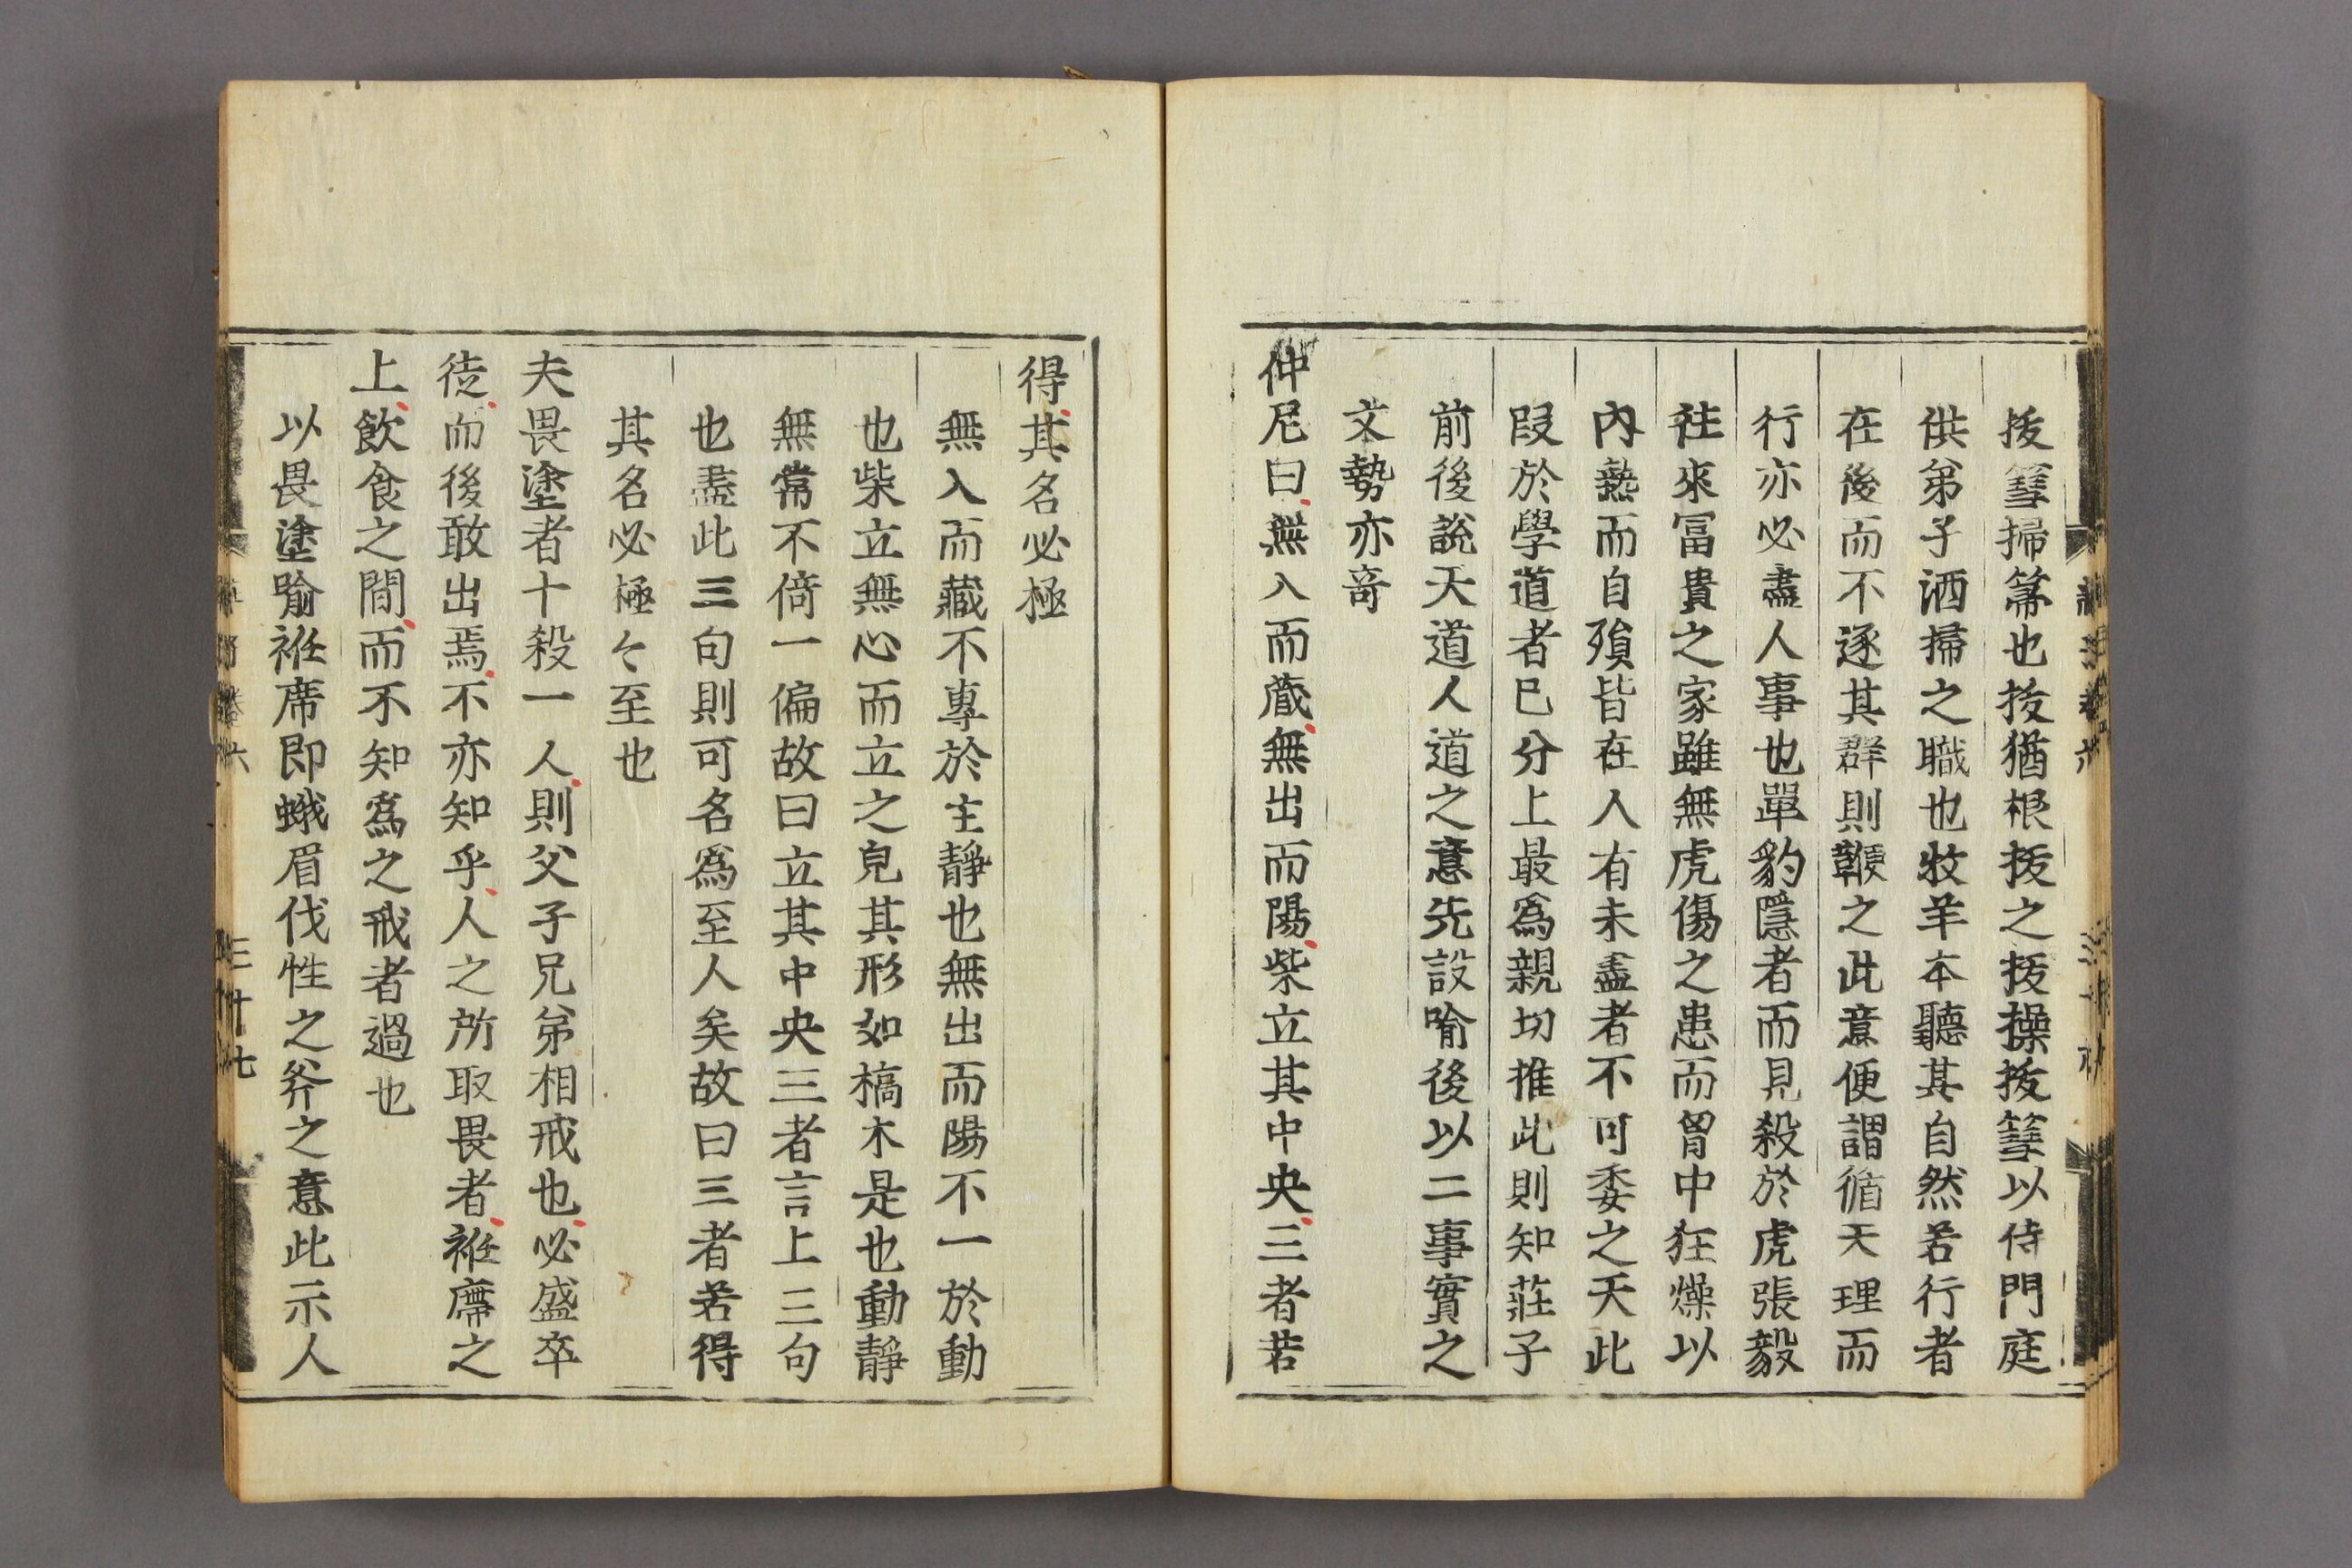 拔篲掃箒也拔猶根拔之拔操拔篲以侍門庭
供弟子洒掃之職也牧羊本聽其自然若行者
在後而不逐其群則鞭之此意便謂循天理而
行亦必盡人事也單豹隱者而見殺於虎張毅
往來冨貴之家雖無虎傷之患而胷中狂燥以
內熱而自殞皆在人有未盡者不可委之天此
段於學道者已分上最為親切推此則知莊子
前後說天道人道之意先設喻後以二事實之
文勢亦竒
仲尼曰無入而蔵無出而陽柴立其中央三者若
得其名必極
無入而藏不專於主靜也無出而陽不一於動
也柴立無心而立之皃其形如槁木是也動靜
無常不倚一偏故曰立其中央三者言上三句
也盡此三句則可名爲至人矣故曰三者若得
其名必極々至也
夫畏塗者十殺一人則父子兄弟相戒也必盛卒
徒而後敢出焉不亦知乎人之所取畏者袵席之
上飲食之間而不知爲之戒者過也
以畏塗喻袵席即蛾眉伐性之斧之意此示人
卷六
三十七